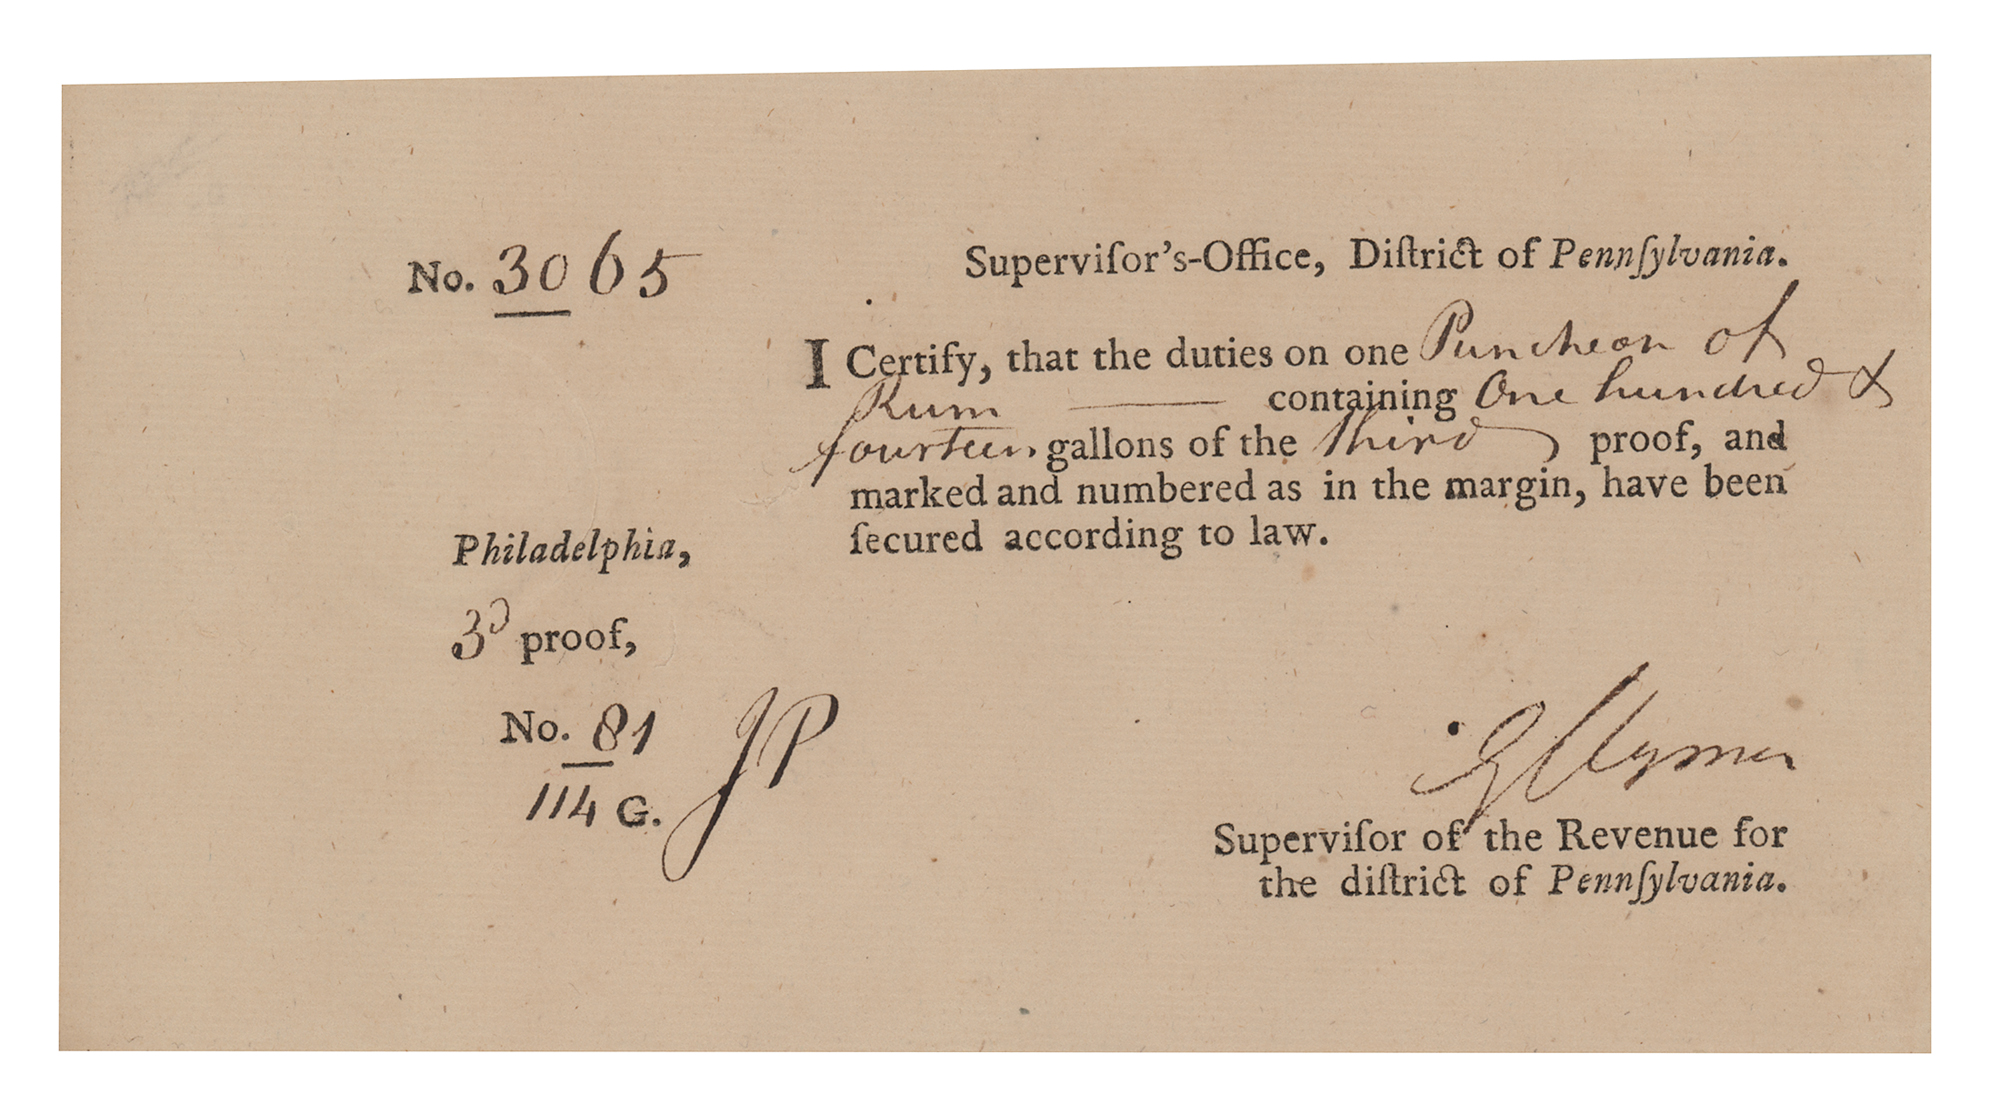 No. 3065
Superviſor's-Office, Diſtrict of Pennſylvania.
I Certify, that the duties on one Puncheon of
Rum —— containing One hundred &
fourteen gallons of the third proof, and
marked and numbered as in the margin, have been
ſecured according to law.
Philadelphia,
3d proof,
No. 81
114 G.
JP
G Clymer
Superviſor of the Revenue for
the diſtrict of Pennſylvania.